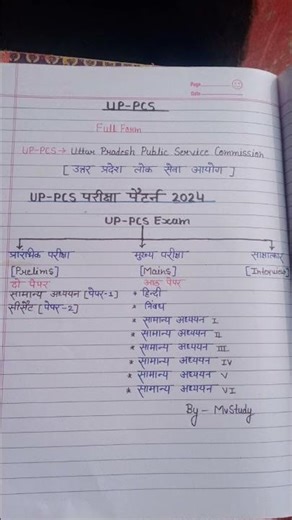 Page
Date
UP-PCS
Full Form
UP-PCS → Uttar Pradesh Public Service Commission
[ उत्तर प्रदेश लोक सेवा आयोग ]
UP-PCS परीक्षा पैटर्न 2024
UP-PCS Exam
प्रारंभिक परीक्षा मुख्य परीक्षा साक्षात्कार
[Prelims] [Mains] [Interview]
दो पेपर आठ पेपर
सामान्य अध्ययन [पेपर-1] * हिन्दी
सीसैट [पेपर-2] * निबंध
* सामान्य अध्ययन I
* सामान्य अध्ययन II
* सामान्य अध्ययन III
* सामान्य अध्ययन IV
* सामान्य अध्ययन V
* सामान्य अध्ययन VI
By - MvStudy